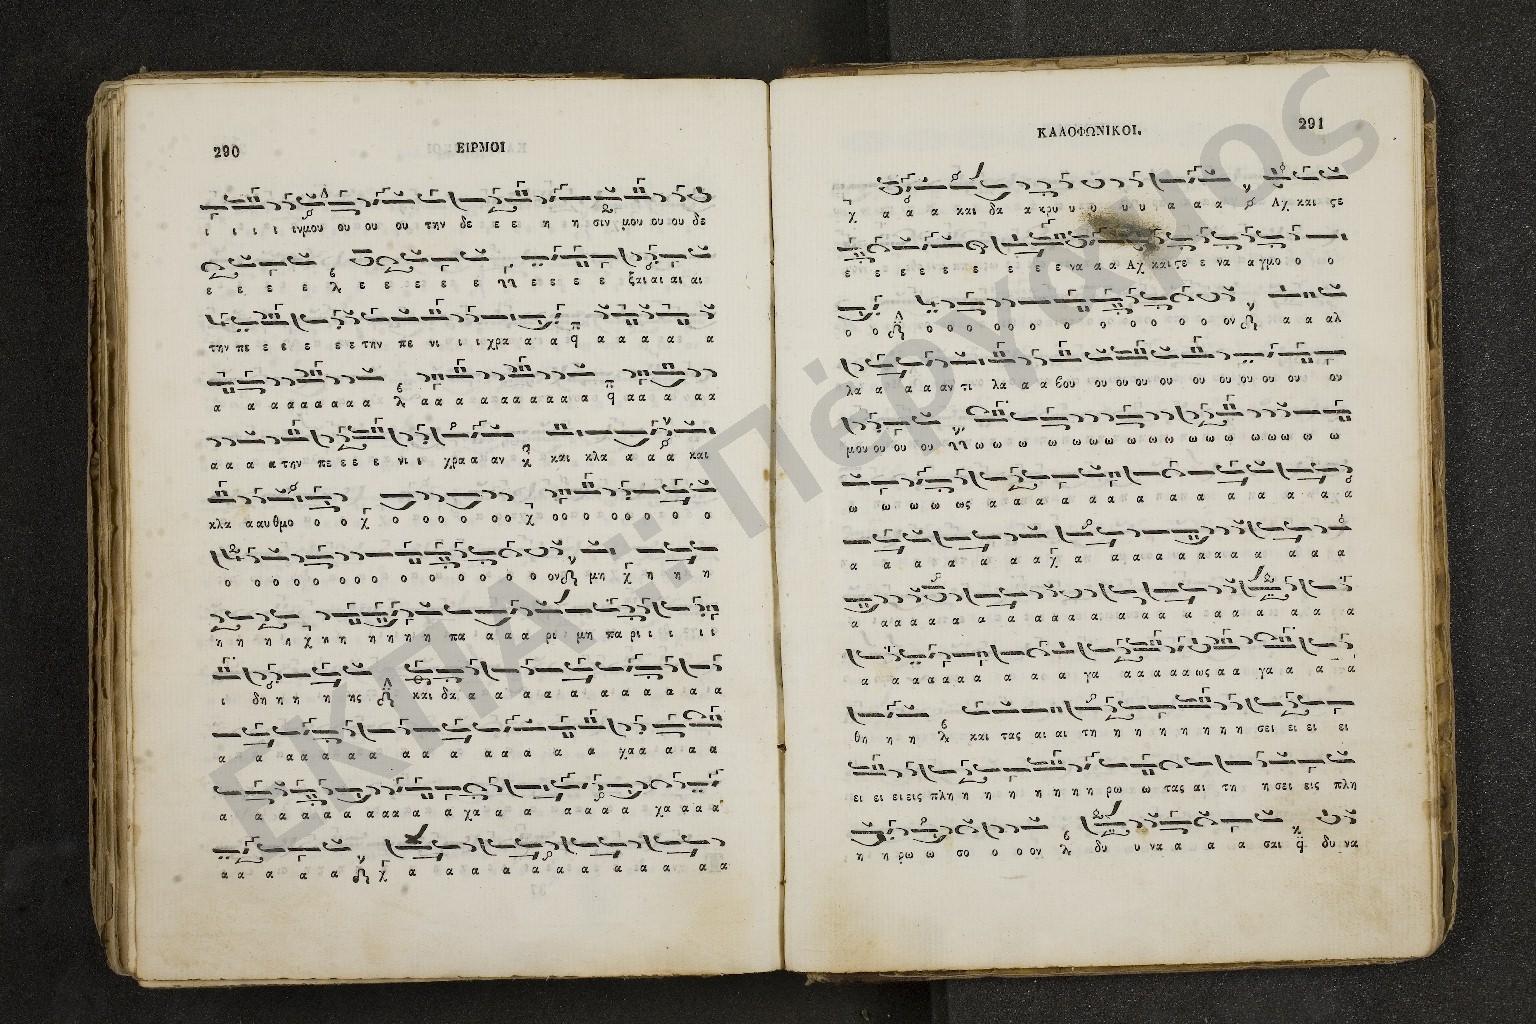 290 ΕΙΡΜΟΙ
ι ι ι ι ινμου ου ου ου την δε ε ε η η σιν μου ου ου δε
ε ε ε ε ε ε ε ε ε ε ε ε ε ε ξαι αι αι αι
την πε ε ε ε ε ε την πε νι ι ι χρα α α α α α α α
α α α α α α α α α α α α α α α α α α α α α α α
α α α α την πε ε ε ε νι ι χρα α αν και κλα α α α και
κλα α αυθμο ο ο ο ο ο ο ο ο ο ο ο ο ο ο ο
ο ο ο ο ο ο ο ο ο ο ο ο ο ο ο ον μη η η η
η η η η η η η η η η πα α α α ρι μη πα ρι ι ι ι ι
ι δη η η η ης και δα α α α α α α α α α α α
α α α α α α α α α α α α α χα α α α α
α α α α α α α α α χα α α α α α α χα α α α
α α α α α α α α α α α α α α α α α
ΚΑΛΟΦΩΝΙΚΟΙ. 291
α α α και δα α κρυ υ υ υ υ α α α Αχ και ςε
ε ε ε ε ε ε ε ε ε να α α Αχ και ςε ε να α γμο ο ο
ο ο ο ο ο ο ο ο ο ο ο ο ο ο ον α α αλ
λα α α α αν τι λα α α βου ου ου ου ου ου ου ου ου ου ου
μου ου ου ου ου ω ω ω ω ω ω ω ω ω ω ω ω ω ω ω ω ω
ω ω ω ω ως α α α α α α α α α α α α α α α
α α α α α α α α α α α α α α α α α α α
α α α α α α α α α α α α α α α α α α α α
α α α α α α α α α γα α α α α α ως α α γα α α α
θη η η και τας αι αι τη η η η η η η η η σει ει ει ει
ει ει ει εις πλη η η η η η η η ρω ω τας αι τη η σει εις πλη
η η ρω ω σο ο ο ον δυ υ να α α α α σαι δυ να
ΕΚΠΑ :: Πέργαμος